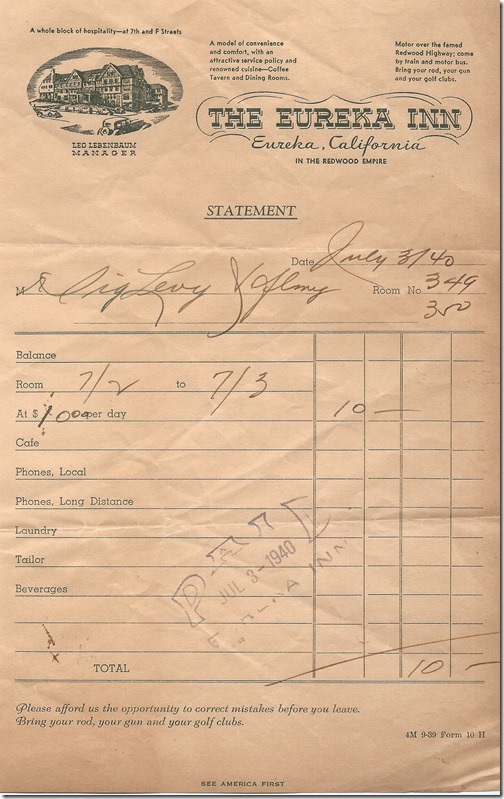 A whole block of hospitality—at 7th and F Streets
LEO LEBENBAUM
MANAGER
A model of convenience
and comfort, with an
attractive service policy and
renowned cuisine—Coffee
Tavern and Dining Rooms.
Motor over the famed
Redwood Highway; come
by train and motor bus.
Bring your rod, your gun
and your golf clubs.
THE EUREKA INN
Eureka, California
IN THE REDWOOD EMPIRE
STATEMENT
Date July 3/40
Mr Sig Levy & Room No 349
350
Balance
Room 7/2 to 7/3
At $ 10 00 per day 10 —
Cafe
Phones, Local
Phones, Long Distance
Laundry
Tailor
Beverages
PAID
JUL 3 - 1940
EUREKA INN
TOTAL 10 —
Please afford us the opportunity to correct mistakes before you leave.
Bring your rod, your gun and your golf clubs.
4M 9-39 Form 10 H
SEE AMERICA FIRST